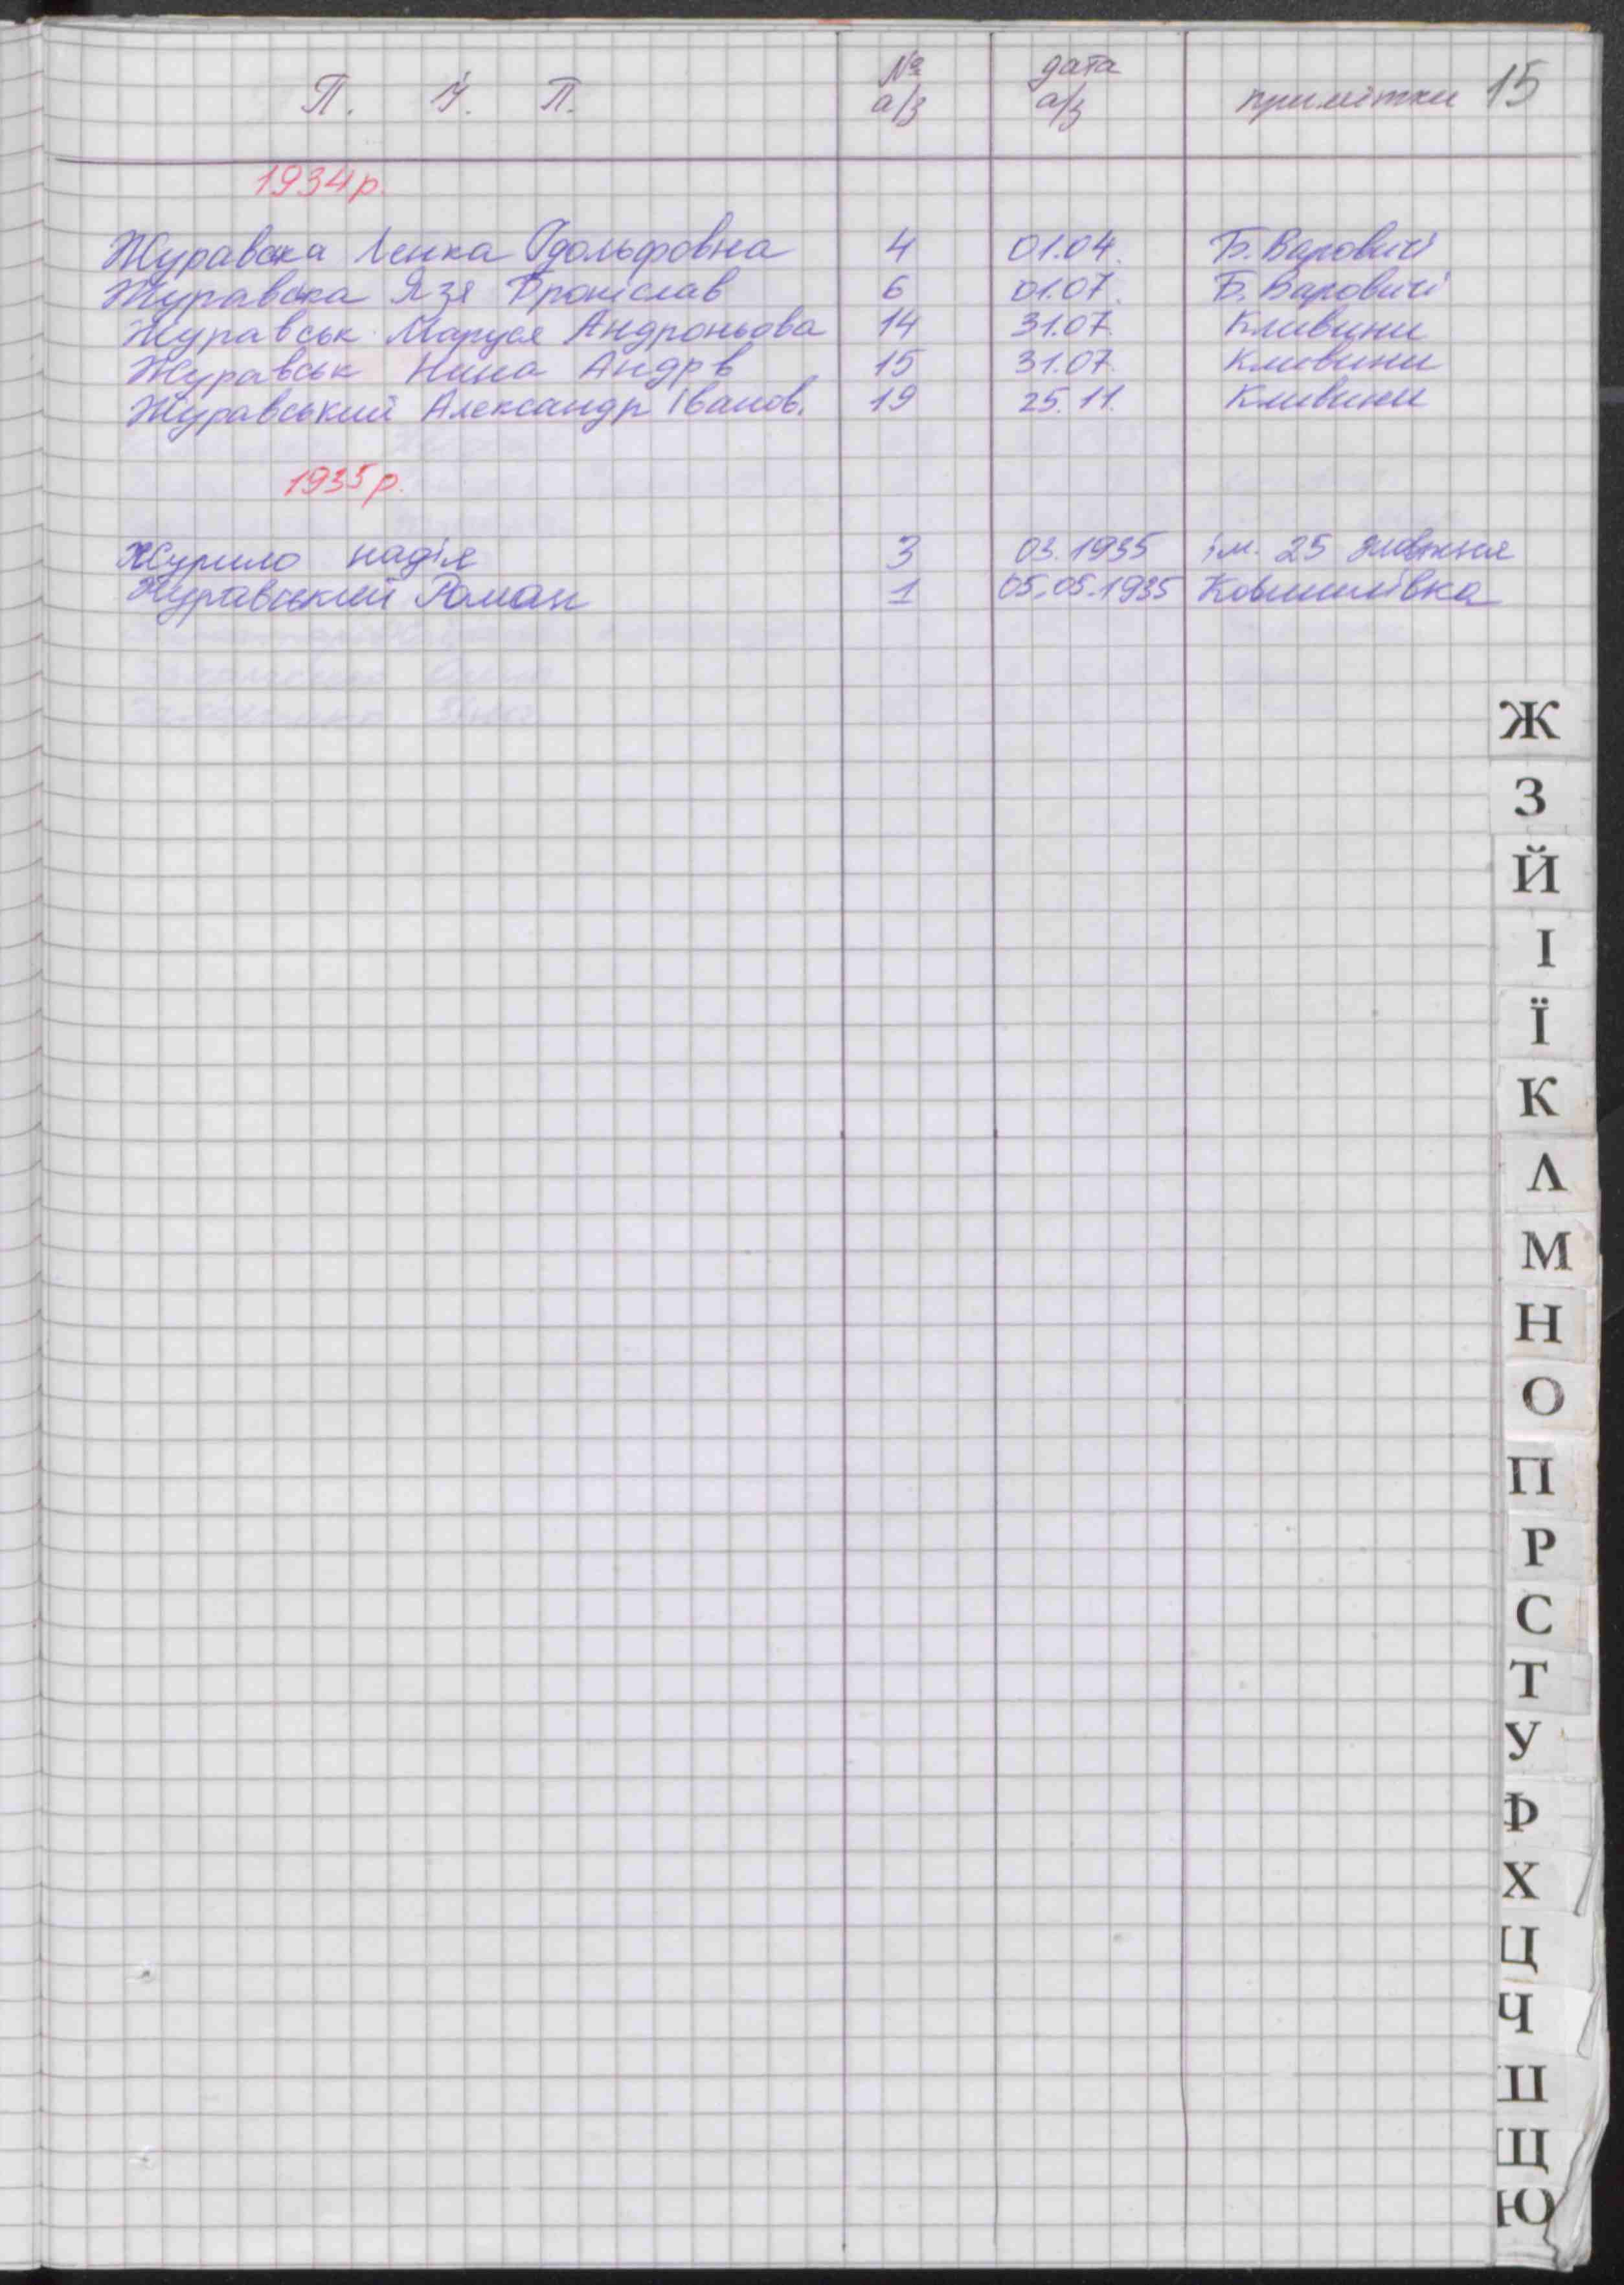 П. І. П. № а/з дата а/з примітки 15
1934р.
Журавска Ленка Одольфовна 4 01.04. Б. Варовичі
Журавска Язя Броніслав 6 01.07. Б. Варовичі
Журавськ Маруся Андроньова 14 31.07. Кливини
Журавськ Нина Андрв 15 31.07. Кливини
Журавський Александр Іванов. 19 25.11. Кливини
1935р.
Журило надія 3 03.1935 ім. 25 жовтня
Журавський Роман 1 05.05.1935 Ковшилівка
Ж
З
Й
І
Ї
К
Л
М
Н
О
П
Р
С
Т
У
Ф
Х
Ц
Ч
Ш
Щ
Ю